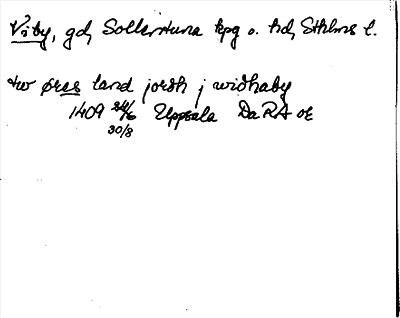 Viby, gd, Sollentuna kpg o. hd, Sthlms l.
tw øres land jordh j widhaby
1409 24/6 Uppsala DaRA or
30/8